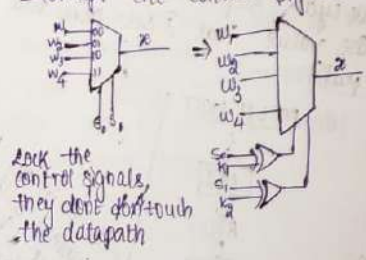 W1 00 x
W2 01
W3 10
W4 11
S0 S1
=>
W1
W2 x
W3
W4
S0
K1
S1
K2
Lock the
control signals,
they dont don't touch
the datapath